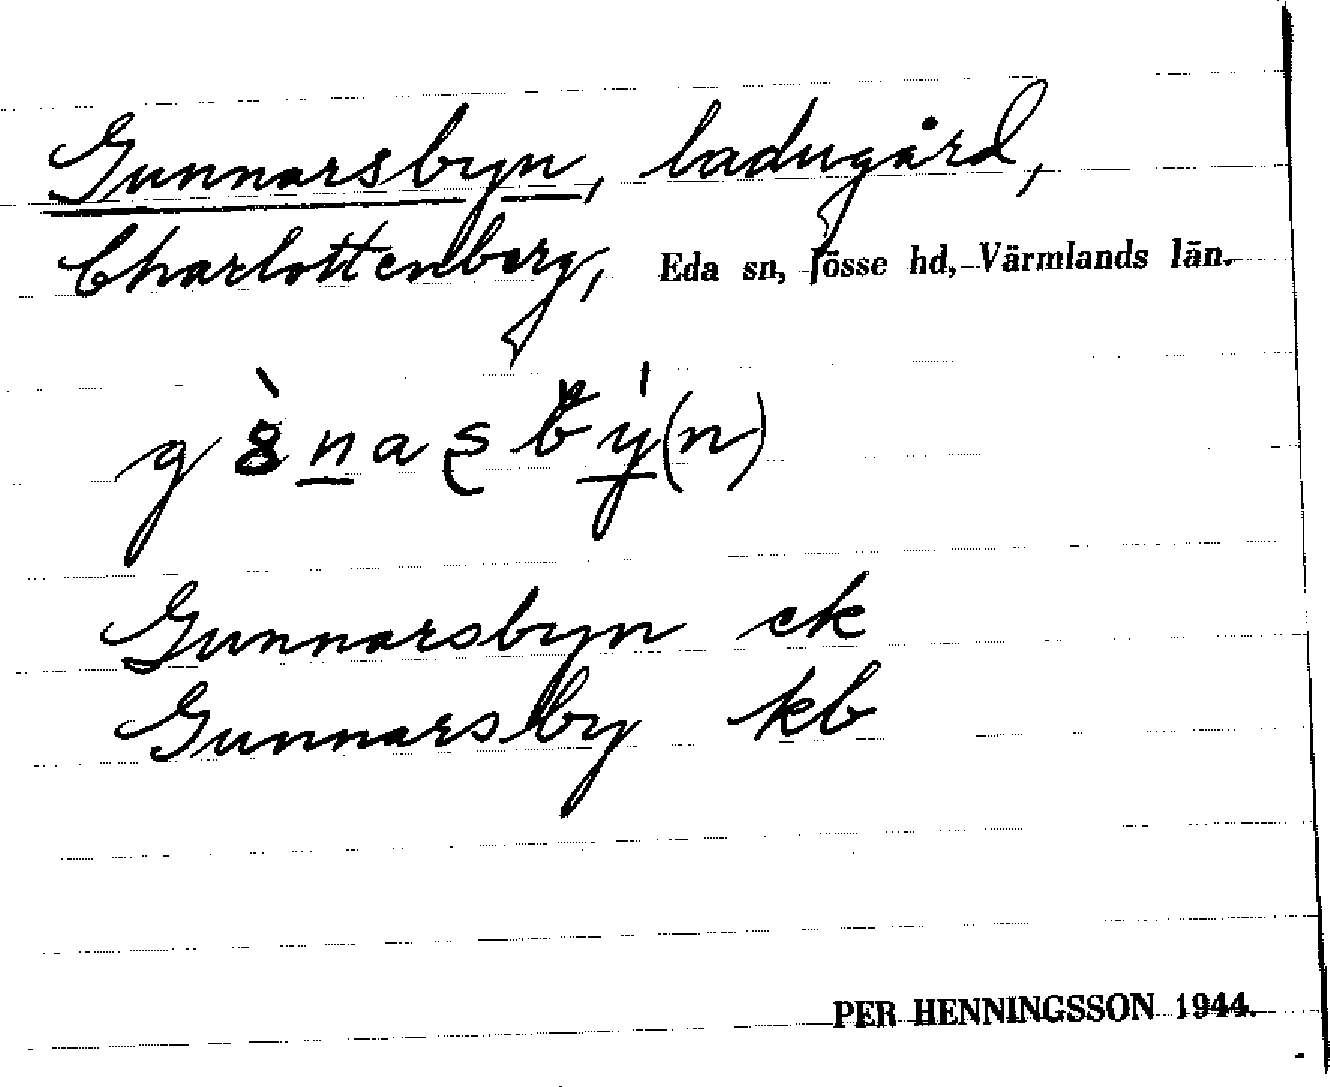 Gunnarsbyn, ladugård,
Charlottenberg, Eda sn, Jösse hd, Värmlands län.
Gunnarsbyn ek
Gunnarsby kb
PER HENNINGSSON 1944.